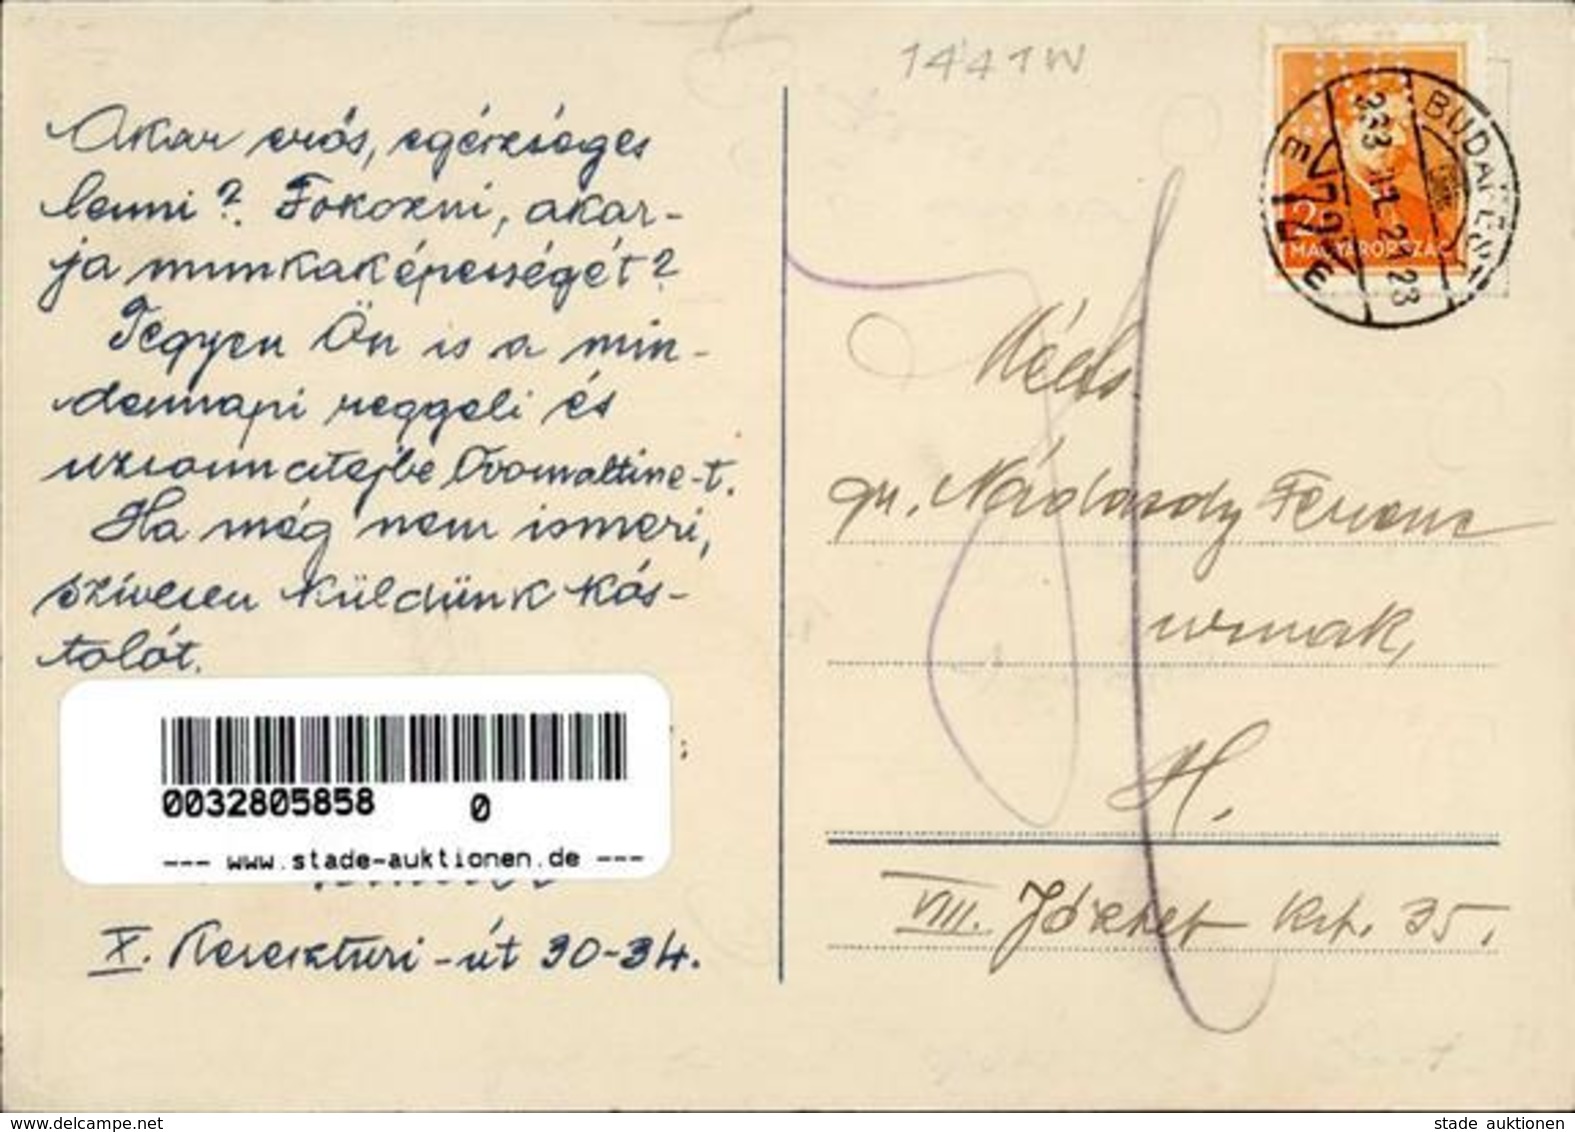 1441W
Akar erős, egészséges
lenni? Fokozni, akar-
ja munkaképességét?
Tegyen Ön is a min-
dennapi reggeli és
uzsonnatejbe Ovomaltine-t.
Ha még nem ismeri,
szívesen küldünk kós-
tolót.
0032805858 0
--- www.stade-auktionen.de ---
X. Kereszturi-út 30-34.
BUDAPEST
2
MAGYARORSZÁG
gr. Nádasdy Ferenc
urnak,
VIII. József krt. 35.
www.delcampe.net
stade auktionen